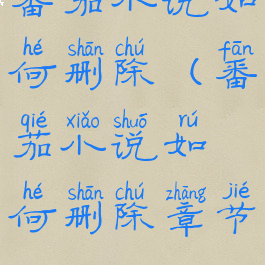 番茄小说如
hé shān chú fān
何删除（番
qié xiǎo shuō rú
茄小说如
hé shān chú zhāng jié
何删除章节